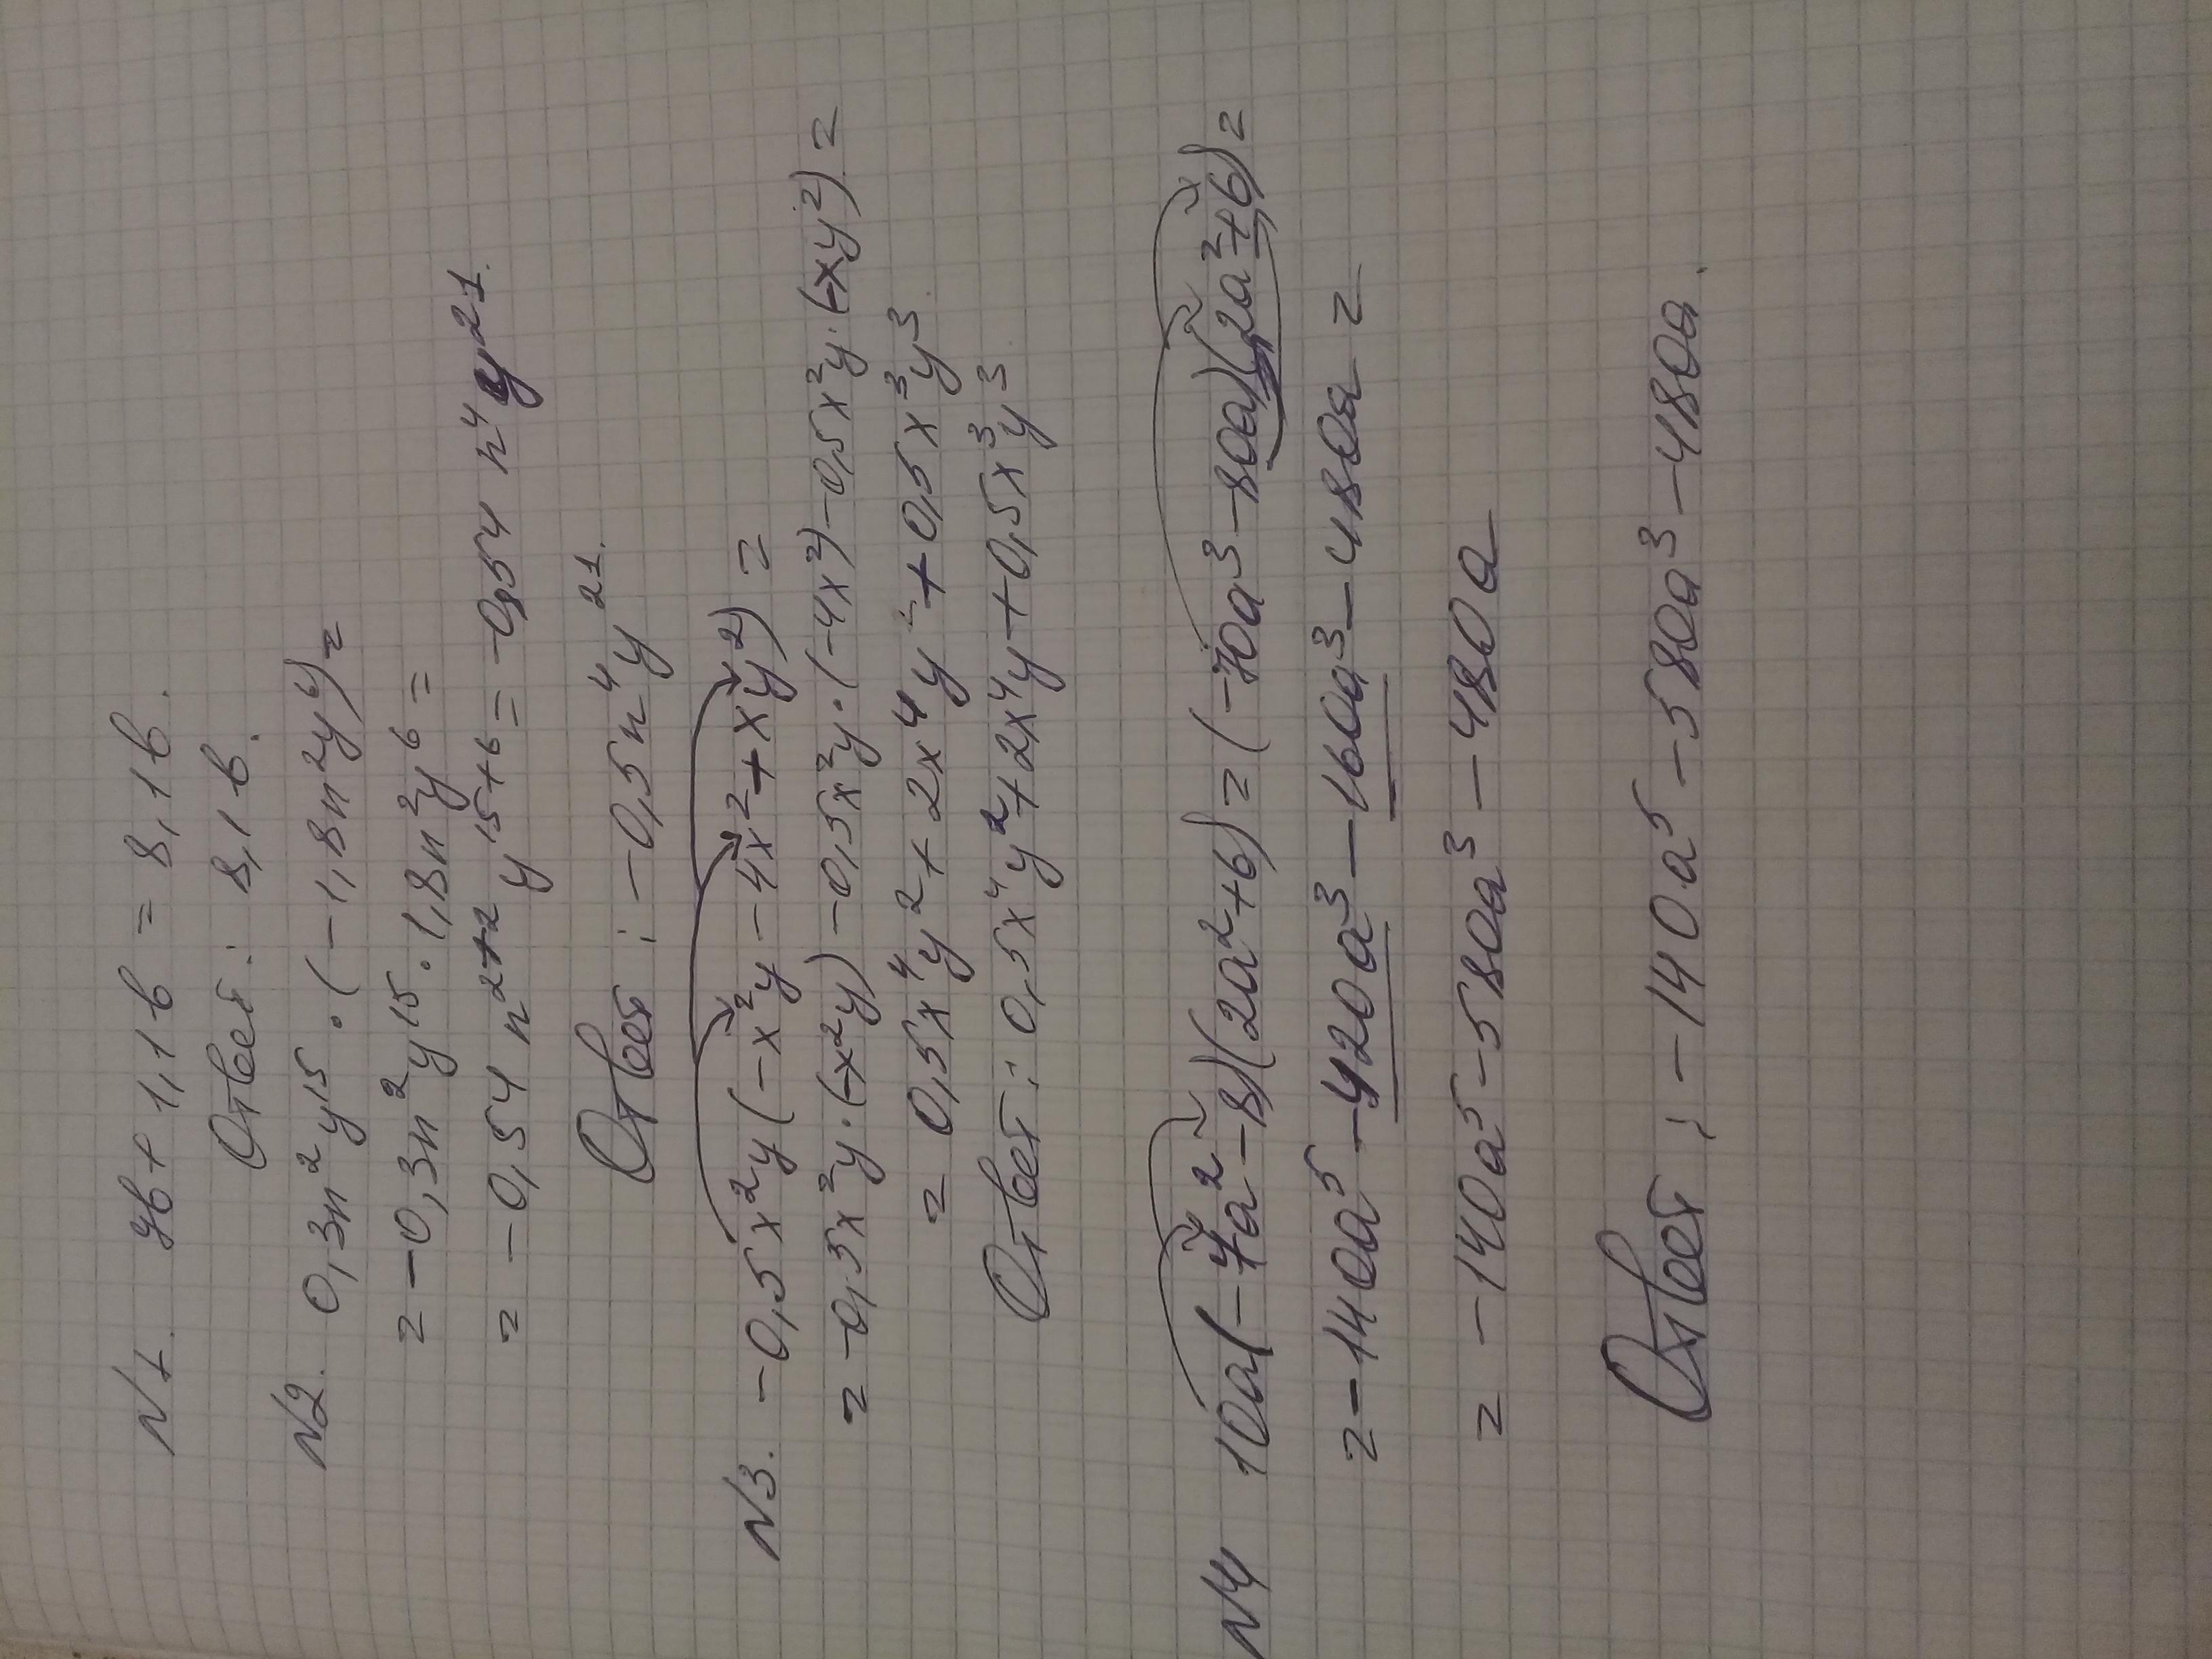 N1. 7в + 1,1в = 8,1в.
Ответ: 8,1в.
N2. 0,3n²y¹⁵ · (-1,8n²y⁶) =
= -0,3n²y¹⁵ · 1,8n²y⁶ =
= -0,54 n²⁺² y¹⁵⁺⁶ = -0,54 n⁴y²¹.
Ответ: -0,5n⁴y²¹.
N3. -0,5x²y(-x²y - 4x² + xy²) =
= -0,5x²y·(-x²y) - 0,5x²y·(-4x²) - 0,5x²y·(-xy²) =
= 0,5x⁴y² + 2x⁴y + 0,5x³y³
Ответ: 0,5x⁴y² + 2x⁴y + 0,5x³y³
N4 10a(-7a² - 8)(2a² + 6) = (-70a³ - 80a)(2a² + 6) =
= -140a⁵ - 420a³ - 160a³ - 480a =
= -140a⁵ - 580a³ - 480a
Ответ: -140a⁵ - 580a³ - 480a.